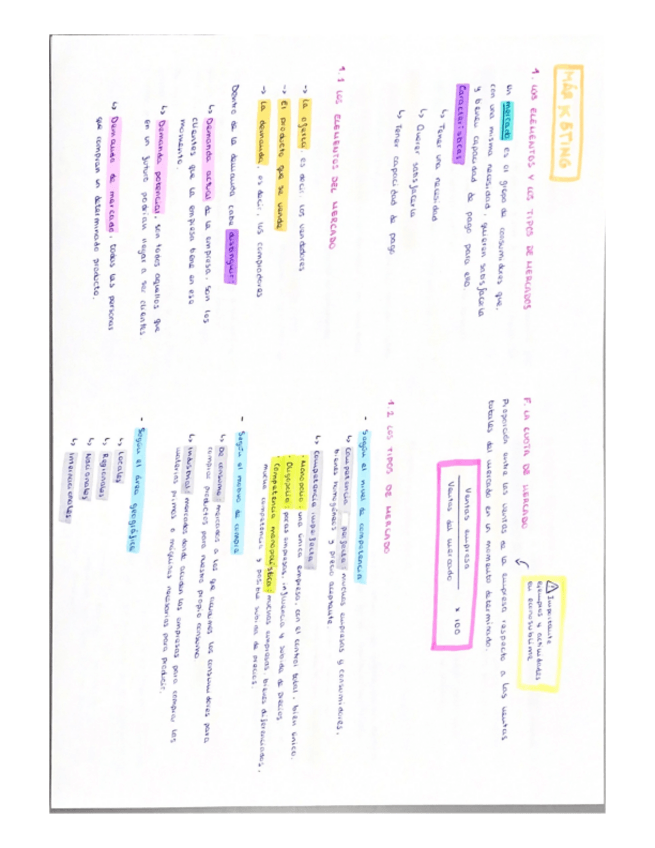 MÁRKETING
1. LOS ELEMENTOS Y LOS TIPOS DE MERCADOS
Un mercado es el grupo de consumidores que,
con una misma necesidad, quieren satisfacerla
y tienen capacidad de pago para ello.
Características
↳ Tener una necesidad
↳ Querer satisfacerla
↳ Tener capacidad de pago
1.1 LOS ELEMENTOS DEL MERCADO
→ La oferta, es decir, los vendedores
→ El producto que se vende
→ La demanda, es decir, los compradores
Dentro de la demanda cabe distinguir:
↳ Demanda actual de la empresa, son los
clientes que la empresa tiene en ese
momento.
↳ Demanda potencial, son todos aquellos que
en un futuro podrían llegar a ser clientes
↳ Demanda de mercado, todas las personas
que compran un determinado producto.
F. LA CUOTA DE MERCADO
⚠ Importante
ejemplos y actividades
Proporción entre las ventas de la empresa respecto a las ventas
totales del mercado en un momento determinado.
Ventas empresa
Ventas del mercado x 100
1.2 LOS TIPOS DE MERCADO
- Según el nivel de competencia
↳ Competencia perfecta: muchas empresas y consumidores,
bienes homogéneos y precio aceptante.
↳ Competencia imperfecta
· Monopolio: una única empresa, con el control total, bien único.
· Oligopolio: pocas empresas, influencia y subida de precios
· Competencia monopolística: muchas empresas bienes diferenciados,
mucha competencia y posible subida de precios.
- Según el modo de compra
↳ De consumo: mercados a los que acudimos los consumidores para
comprar productos para nuestro propio consumo
↳ Industrial: mercados donde acuden las empresas para comprar las
materias primas o máquinas necesarias para producir.
- Según el área geográfica
↳ Locales
↳ Regionales
↳ Nacionales
↳ Internacionales